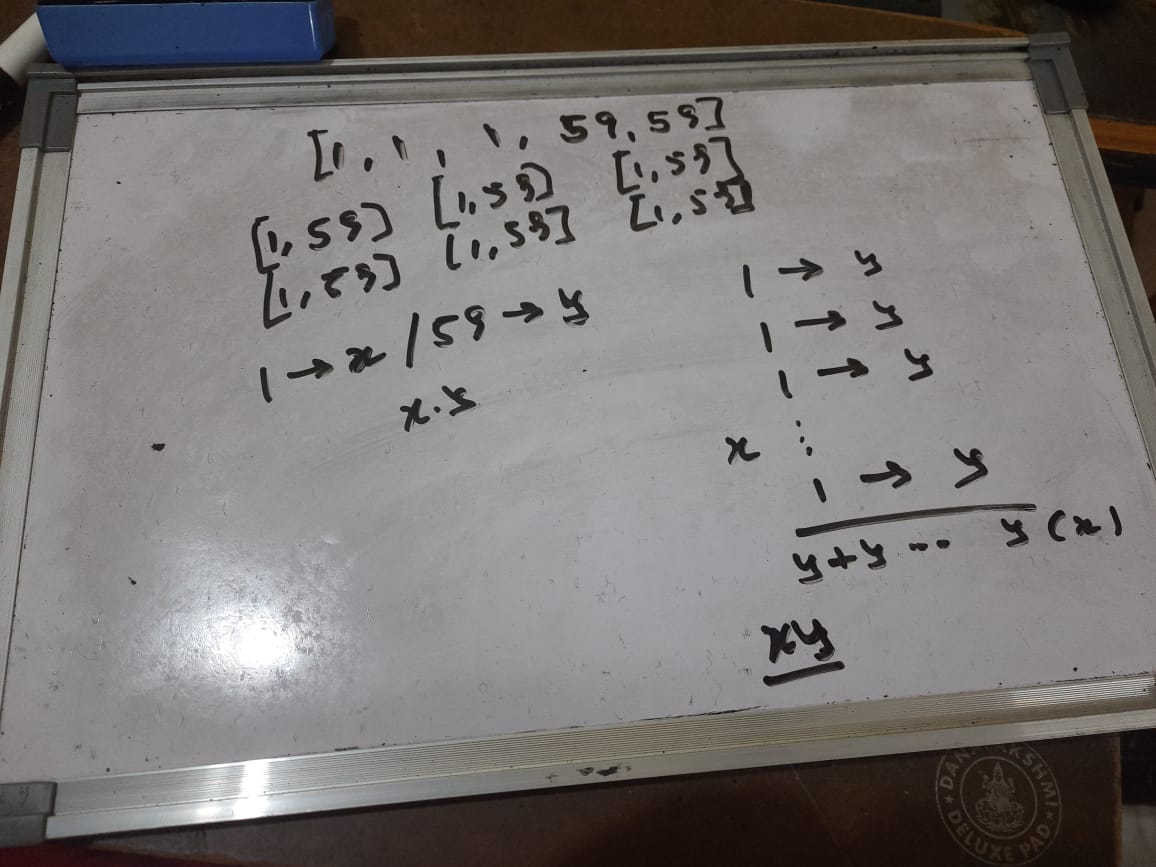 [1, 1, 1, 59, 59]
[1, 59] [1, 59] [1, 59]
[1, 59] [1, 59] [1, 59]
1 → x / 59 → y
x.y
1 → y
1 → y
1 → y
x ⋮
1 → y
y + y ... y (x)
xy
DELUXE PAD